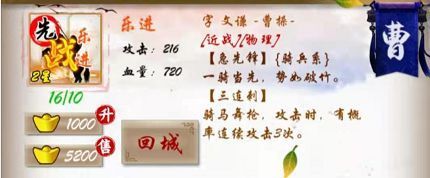 乐进
攻击：216
血量：720
先
战
乐进
2星
16/10
1000 升
5200 售
回城
字 文谦 -曹操-
[近战][物理]
【急先锋】{骑兵系}
一骑当先，势如破竹。
【三连刺】
骑马舞枪，攻击时，有概
率连续攻击3次。
曹